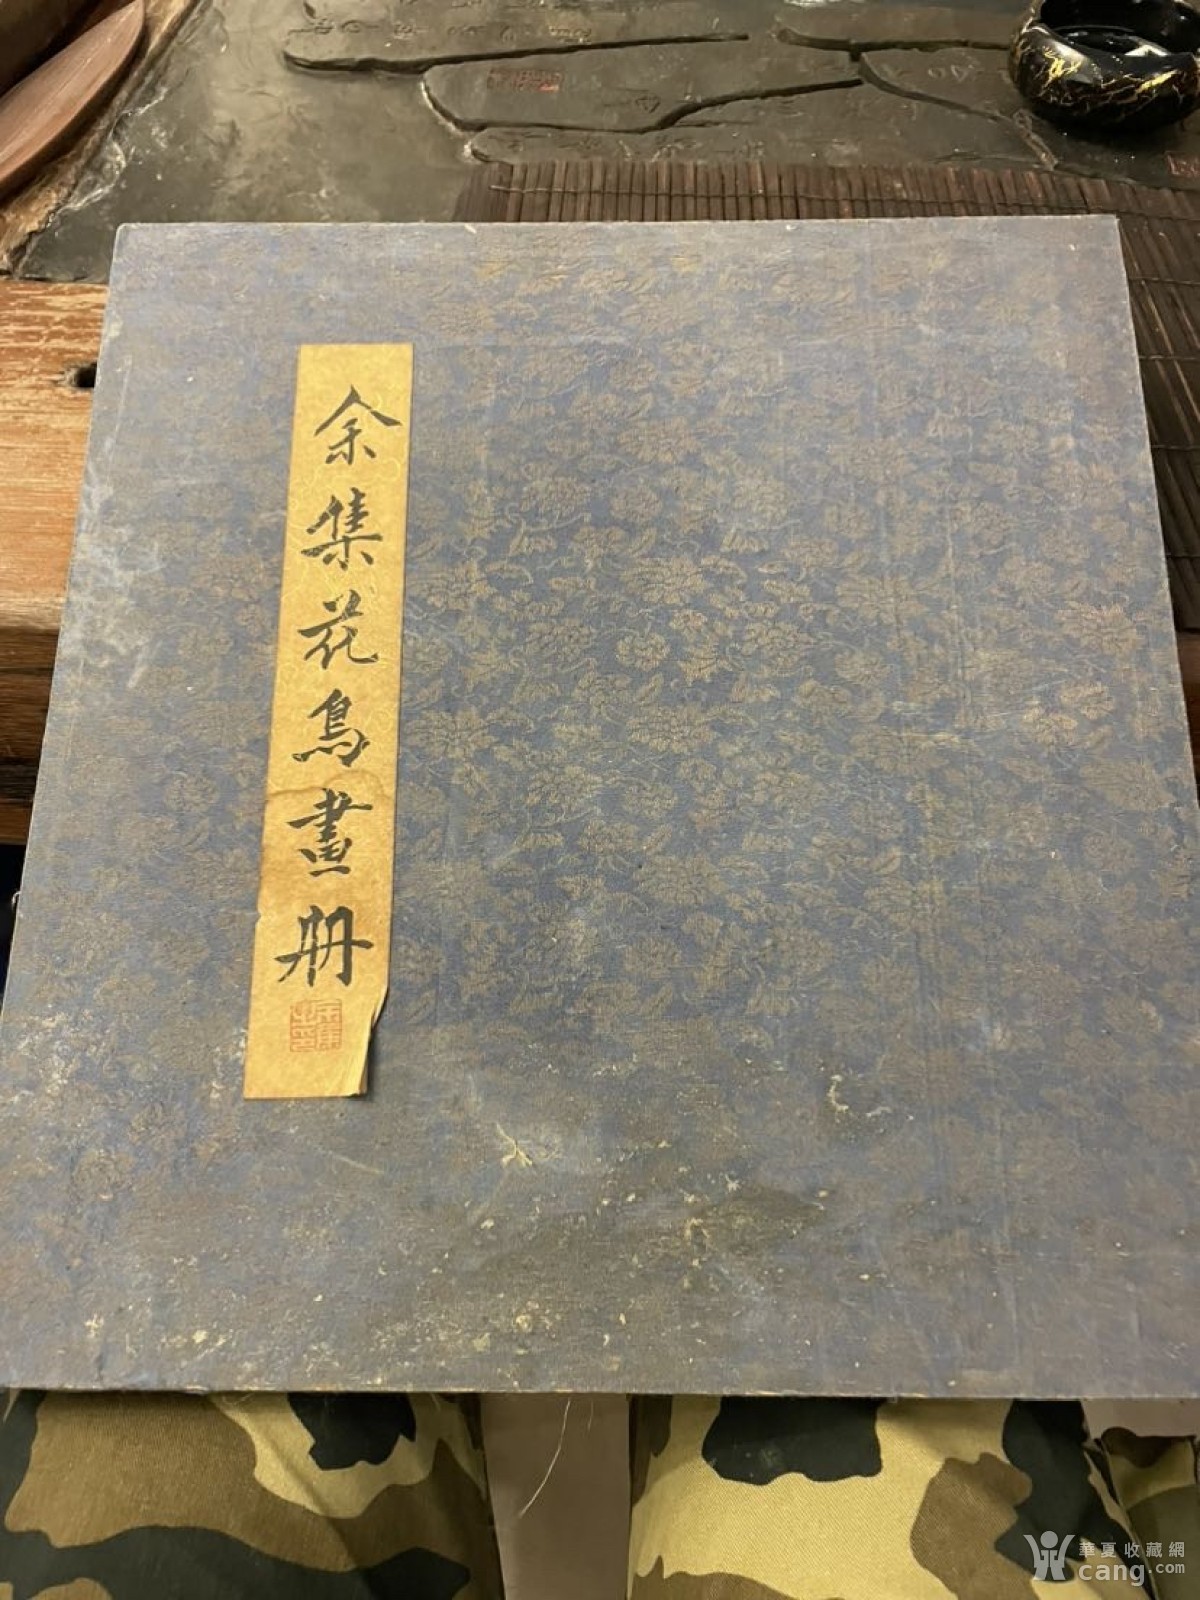 余集花鳥畫册
華夏收藏網
cang.com